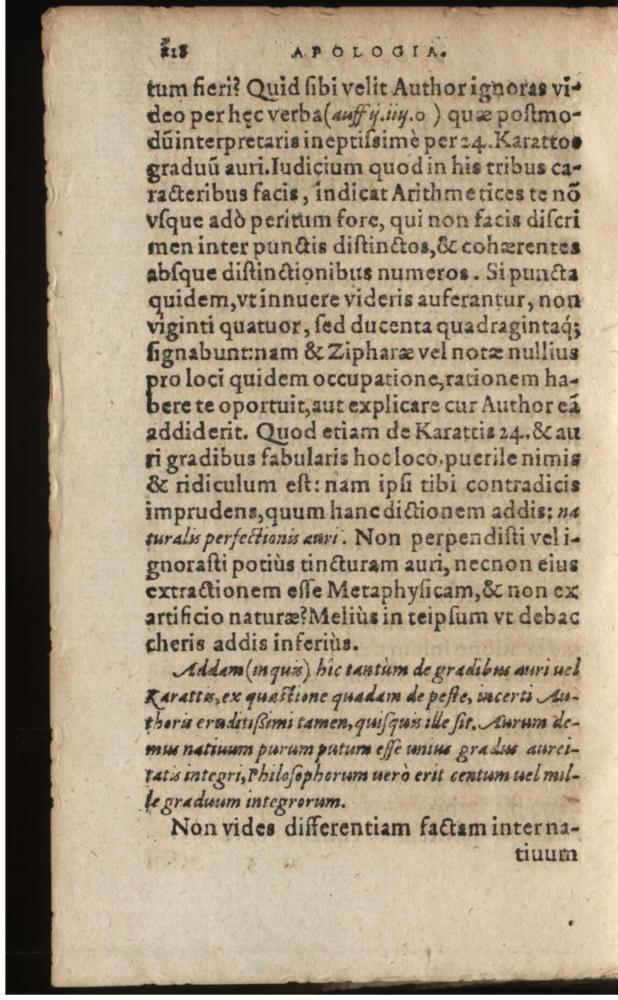 218 APOLOGIA.
tum fieri? Quid sibi velit Author ignoras vi-
deo per hęc verba (auff ij.iiij.o ) quæ postmo-
dū interpretaris ineptissimè per 24. Karattos
graduū auri. Iudicium quod in his tribus ca-
racteribus facis, indicat Arithmetices te nō
vsque adò peritum fore, qui non facis discri
men inter punctis distinctos, & cohærentes
absque distinctionibus numeros. Si puncta
quidem, vt innuere videris auferantur, non
viginti quatuor, sed ducenta quadragintaq́;
signabunt: nam & Zipharæ vel notæ nullius
pro loci quidem occupatione, rationem ha-
bere te oportuit, aut explicare cur Author eā
addiderit. Quod etiam de Karattis 24. & au
ri gradibus fabularis hoc loco, puerile nimis
& ridiculum est: nam ipsi tibi contradicis
imprudens, quum hanc dictionem addis: na
turalis perfectionis auri. Non perpendisti vel i-
gnorasti potiùs tincturam auri, necnon eius
extractionem esse Metaphysicam, & non ex
artificio naturæ? Meliùs in teipsum vt debac
cheris addis inferiùs.
Addam (inquis) hîc tantùm de gradibus auri uel
Karattis, ex quæstione quadam de peste, incerti Au-
thoris eruditißimi tamen, quisquis ille sit. Aurum de-
mus natiuum purum putum esse unius gradus aurei-
tatis integri, Philosophorum uerò erit centum uel mil-
le graduum integrorum.
Non vides differentiam factam inter na-
tiuum